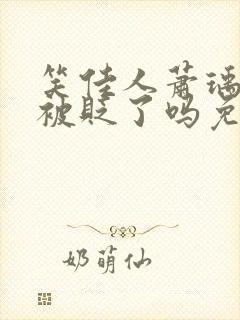 笑佳人萧瑀
被贬了吗免
奶萌仙